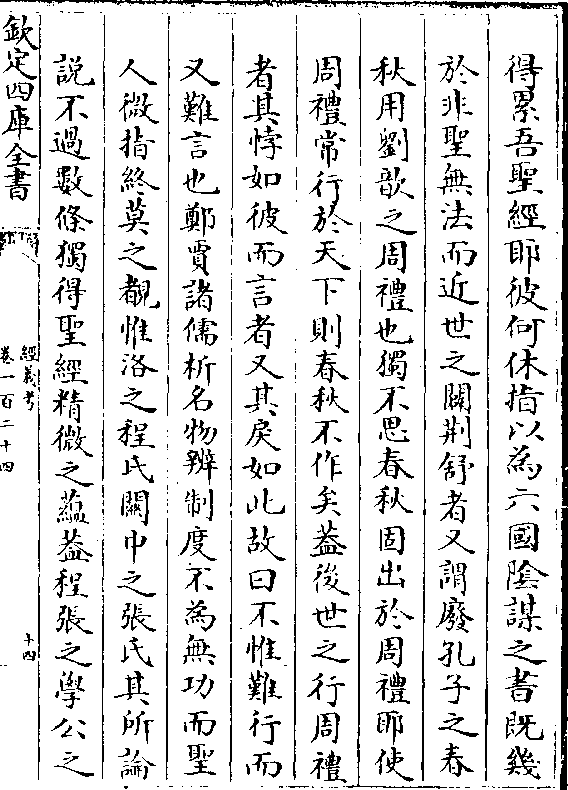 得累吾聖經耶彼何休指以為六國陰謀之書既幾
於非聖無法而近世之闢荆舒者又謂廢孔子之春
秋用劉歆之周禮也獨不思春秋固出於周禮耶使
周禮常行於天下則春秋不作矣葢後世之行周禮
者其悖如彼而言者又其戾如此故曰不惟難行而
又難言也鄭賈諸儒析名物辨制度不為無功而聖
人微指終莫之覩惟洛之程氏關中之張氏其所論
說不過數條獨得聖經精微之蘊葢程張之學公之
欽定四庫全書
經義考
卷一百二十四
十四